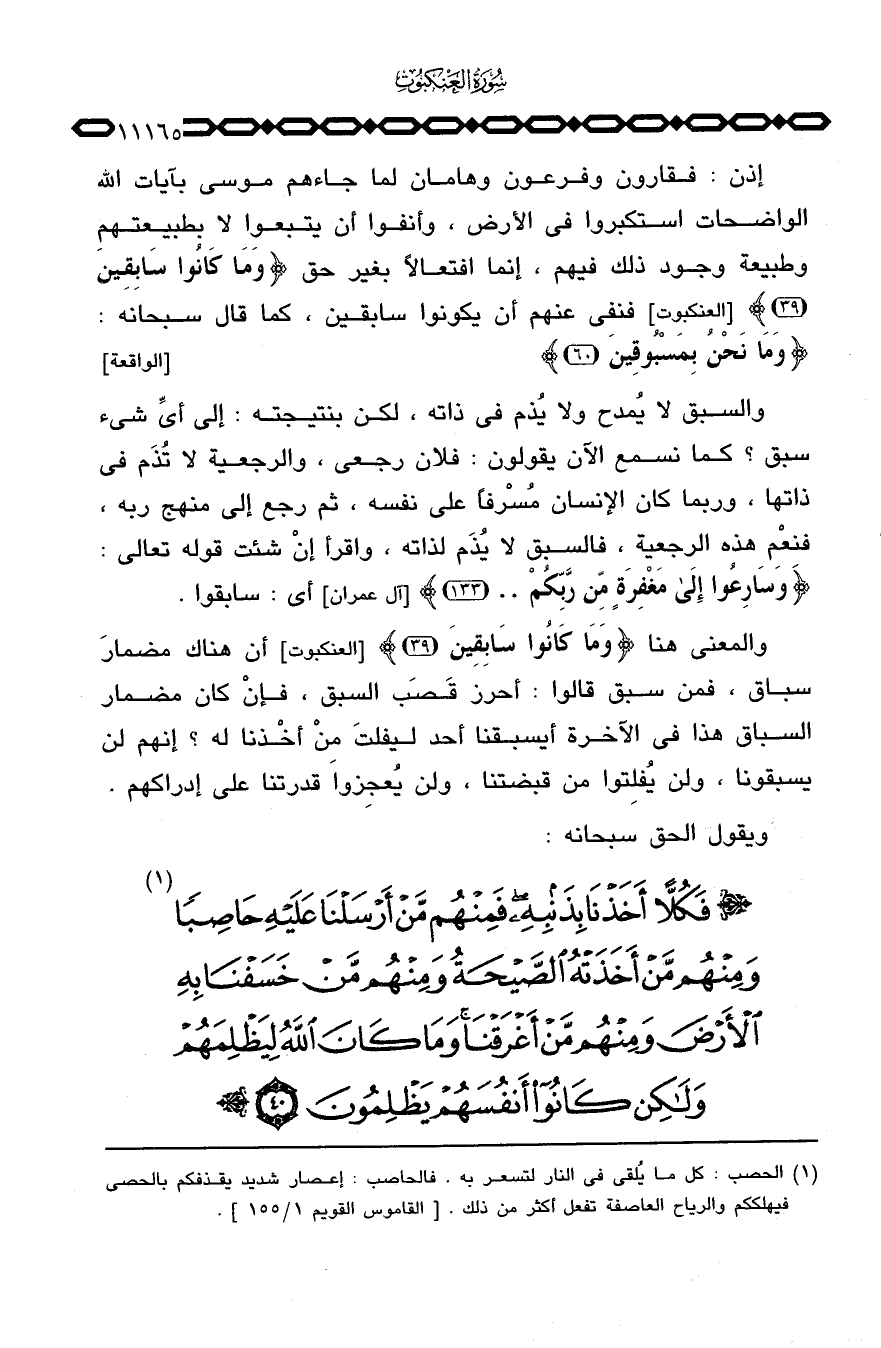 سورة العنكبوت
١١١٦٥
إذن : فـقارون وفـرعـون وهامـان لما جـاءهم مـوسى بـآيات الله
الواضـحات اسـتكبروا فى الأرض ، وأنفـوا أن يتـبعـوا لا بطبيـعتـهم
وطبيعة وجـود ذلك فيهم ، إنما افتعـالاً بغير حق ﴿ وَمَا كَانُوا سَابِقِينَ
(٣٩) ﴾ [العنكبوت] فنفى عنهم أن يكونوا سابقـين ، كما قال سـبحانه :
﴿ وَمَا نَحْنُ بِمَسْبُوقِينَ (٦٠) ﴾ [الواقعة]
والسـبق لا يُمدح ولا يُذم فى ذاته ، لكـن بنتيـجتـه : إلى أىِّ شىء
سبق ؟ كـما نسـمع الآن يقولون : فلان رجـعى ، والرجعـية لا تُذَم فى
ذاتها ، وربما كان الإنسان مُسْرفاً على نفسه ، ثم رجع إلى منهج ربه ،
فنعْم هذه الرجعية ، فالسـبق لا يُذَم لذاته ، واقرأ إنْ شئت قوله تعالى :
﴿ وَسَارِعُوا إِلَىٰ مَغْفِرَةٍ مِّن رَّبِّكُمْ .. (١٣٣) ﴾ [آل عمران] أى : سابقوا .
والمعنى هنا ﴿ وَمَا كَانُوا سَابِقِينَ (٣٩) ﴾ [العنكبوت] أن هناك مضمارَ
سبـاق ، فمن سـبق قالوا : أحرز قَـصَب السبق ، فـإنْ كان مضـمار
السـباق هذا فى الآخـرة أيسبـقنا أحد لـيفلتَ منْ أخْـذنا له ؟ إنهم لن
يسبقونا ، ولن يُفلتوا من قبضتنا ، ولن يُعجِزوا قدرتنا على إدراكهم .
ويقول الحق سبحانه :
﴿ فَكُلًّا أَخَذْنَا بِذَنۢبِهِۦۖ فَمِنْهُم مَّنْ أَرْسَلْنَا عَلَيْهِ حَاصِبًا (١)
وَمِنْهُم مَّنْ أَخَذَتْهُ ٱلصَّيْحَةُ وَمِنْهُم مَّنْ خَسَفْنَا بِهِ
ٱلْأَرْضَ وَمِنْهُم مَّنْ أَغْرَقْنَاۚ وَمَا كَانَ ٱللَّهُ لِيَظْلِمَهُمْ
وَلَـٰكِن كَانُوٓا۟ أَنفُسَهُمْ يَظْلِمُونَ ٤٠ ﴾
(١) الحصب : كل مـا يُلقى فى النار لتسعـر به . فالحاصب : إعـصار شديد يقـذفكم بالحصى
فيهلككم والرياح العاصفة تفعل أكثر من ذلك . [ القاموس القويم ١٥٥/١ ] .